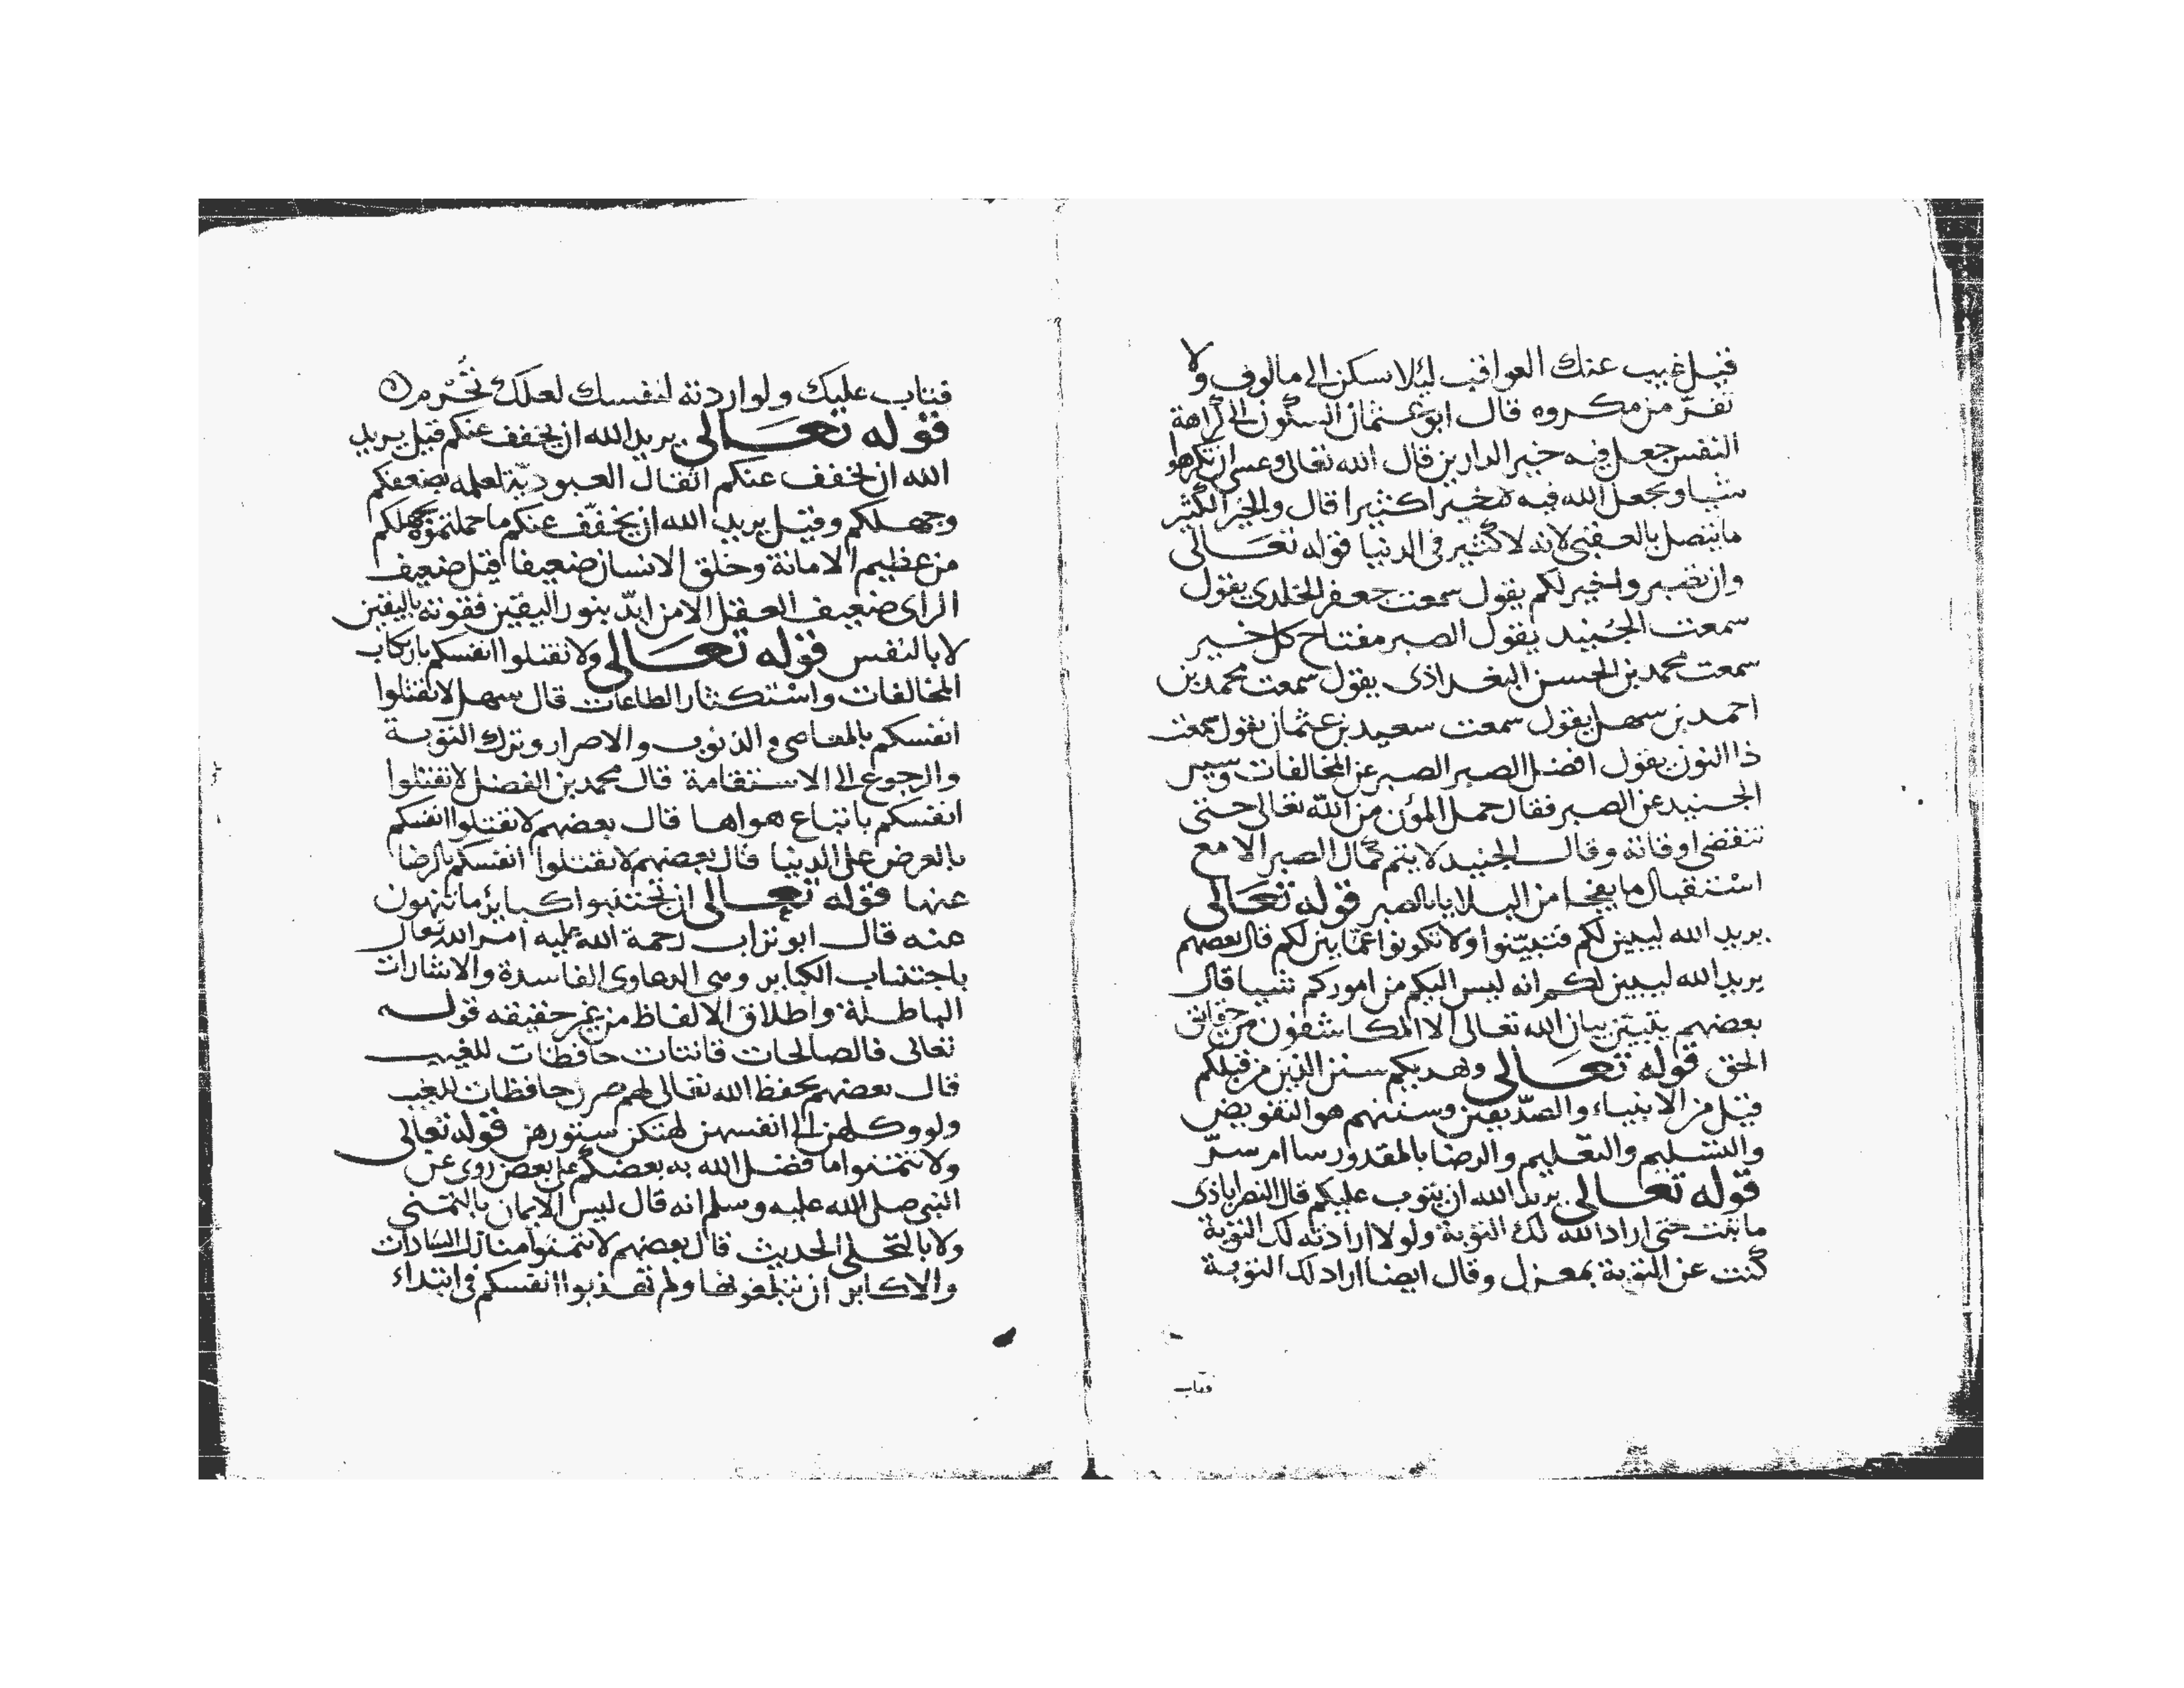 قيل غيب عنك العواقب ليلا سكن الى مالوف ولا
تفرّ من مكروه قال ابو عثمان السكون الى كراهة
النفس جعل فيه خير الدارين قال الله تعالى وعسى ان تكرهوا
شيا ويجعل الله فيه خيرا كثيرا قال والخير الكثير
ما يتصل بالعقبى لانه لا كثير في الدنيا قوله تعالى
وان تصبروا خير لكم يقول سمعت جعفر الخلدى يقول
سمعت الجنيد يقول الصبر مفتاح كل خير
سمعت محمد بن الحسن البغداذى يقول سمعت محمد بن
احمد بن سهل يقول سمعت سعيد بن عثمان يقول سمعت
ذا النون يقول افضل الصبر الصبر عن المخالفات وسيل
الجنيد عن الصبر فقال حمل المؤن من الله تعالى حتى
تنقضى اوقاته وقال الجنيد لا يتم كمال الصبر الا مع
استقبال ما يفجا من البلايا بالصبر قوله تعالى
يريد الله ليبين لكم فتبيّنوا ولا تكونوا عمّا بين لكم قال بعضهم
يريد الله ليبين لكم انه ليس اليكم من اموركم شيا قال
بعضهم يتبيّن بيان الله تعالى الا المكاشفون من حقائق
الحق قوله تعالى ويهديكم سنن الذين من قبلكم
قيل من الانبياء والصدّيقين وسننهم هو التفويض
والتسليم والتعليم والرضا بالمقدور ساء ام سرّ
قوله تعالى يريد الله ان يتوب عليكم قال النصراباذى
ما تبت حتى اراد الله لك التوبة ولولا ارادته لك التوبة
كنت عن التوبة بمعزل وقال ايضا اراد لك التوبة
فتاب
فتاب عليك ولو اردته لنفسك لعلك تحرم
قوله تعالى يريد الله ان يخفف عنكم قيل يريد
الله ان يخفف عنكم اثقال العبوديّة لعلمه بضعفكم
وجهلكم وقيل يريد الله ان يخفّف عنكم ما حملتموه بجهلكم
من عظيم الامانة وخلق الانسان ضعيفا قيل ضعيف
الراى ضعيف العقل الا من ايّد بنور اليقين فقوته باليقين
لا بالنفس قوله تعالى ولا تقتلوا انفسكم بارتكاب
المخالفات واستكثار الطاعات قال سهل لا تقتلوا
انفسكم بالمعاصى والذنوب والاصرار وترك التوبة
والرجوع الى الاستقامة قال محمد بن الفضل لا تقتلوا
انفسكم باتباع هواها قال بعضهم لا تقتلوا انفسكم
بالعرض على الدنيا قال بعضهم لا تقتلوا انفسكم بالرضا
عنها قوله تعالى ان تجتنبوا كبائر ما تنهون
عنه قال ابو تراب رحمة الله عليه امر الله تعالى
باجتناب الكباير وهى الدعاوى الفاسدة والاشارات
الباطلة واطلاق الالفاظ من غير حقيقه قوله
تعالى فالصالحات قانتات حافظات للغيب
قال بعضهم بحفظ الله تعالى لهم صرن حافظات للغيب
ولو وكلهن الى انفسهن لهتكن ستورهن قوله تعالى
ولا تتمنوا ما فضل الله به بعضكم على بعض روى عن
النبى صلى الله عليه وسلم انه قال ليس الايمان بالتمنى
ولا بالتحلى الحديث قال بعضهم لا تتمنوا منازل السادات
والاكابر ان تبلغوها ولم تهذبوا انفسكم في ابتداء